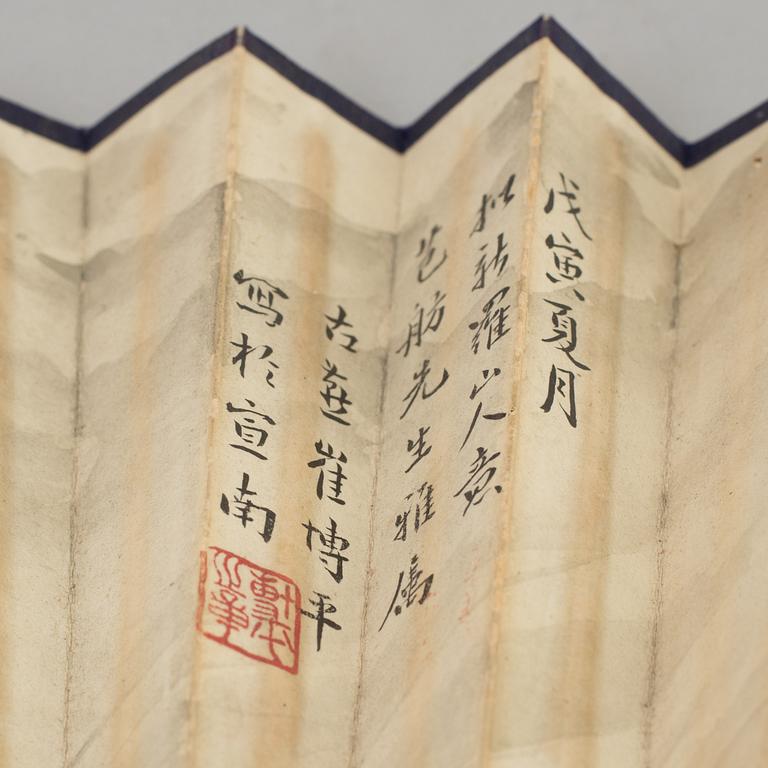 戊寅夏月
拟新羅山人意
芑舫先生雅属
古燕崔博平
寫於宣南